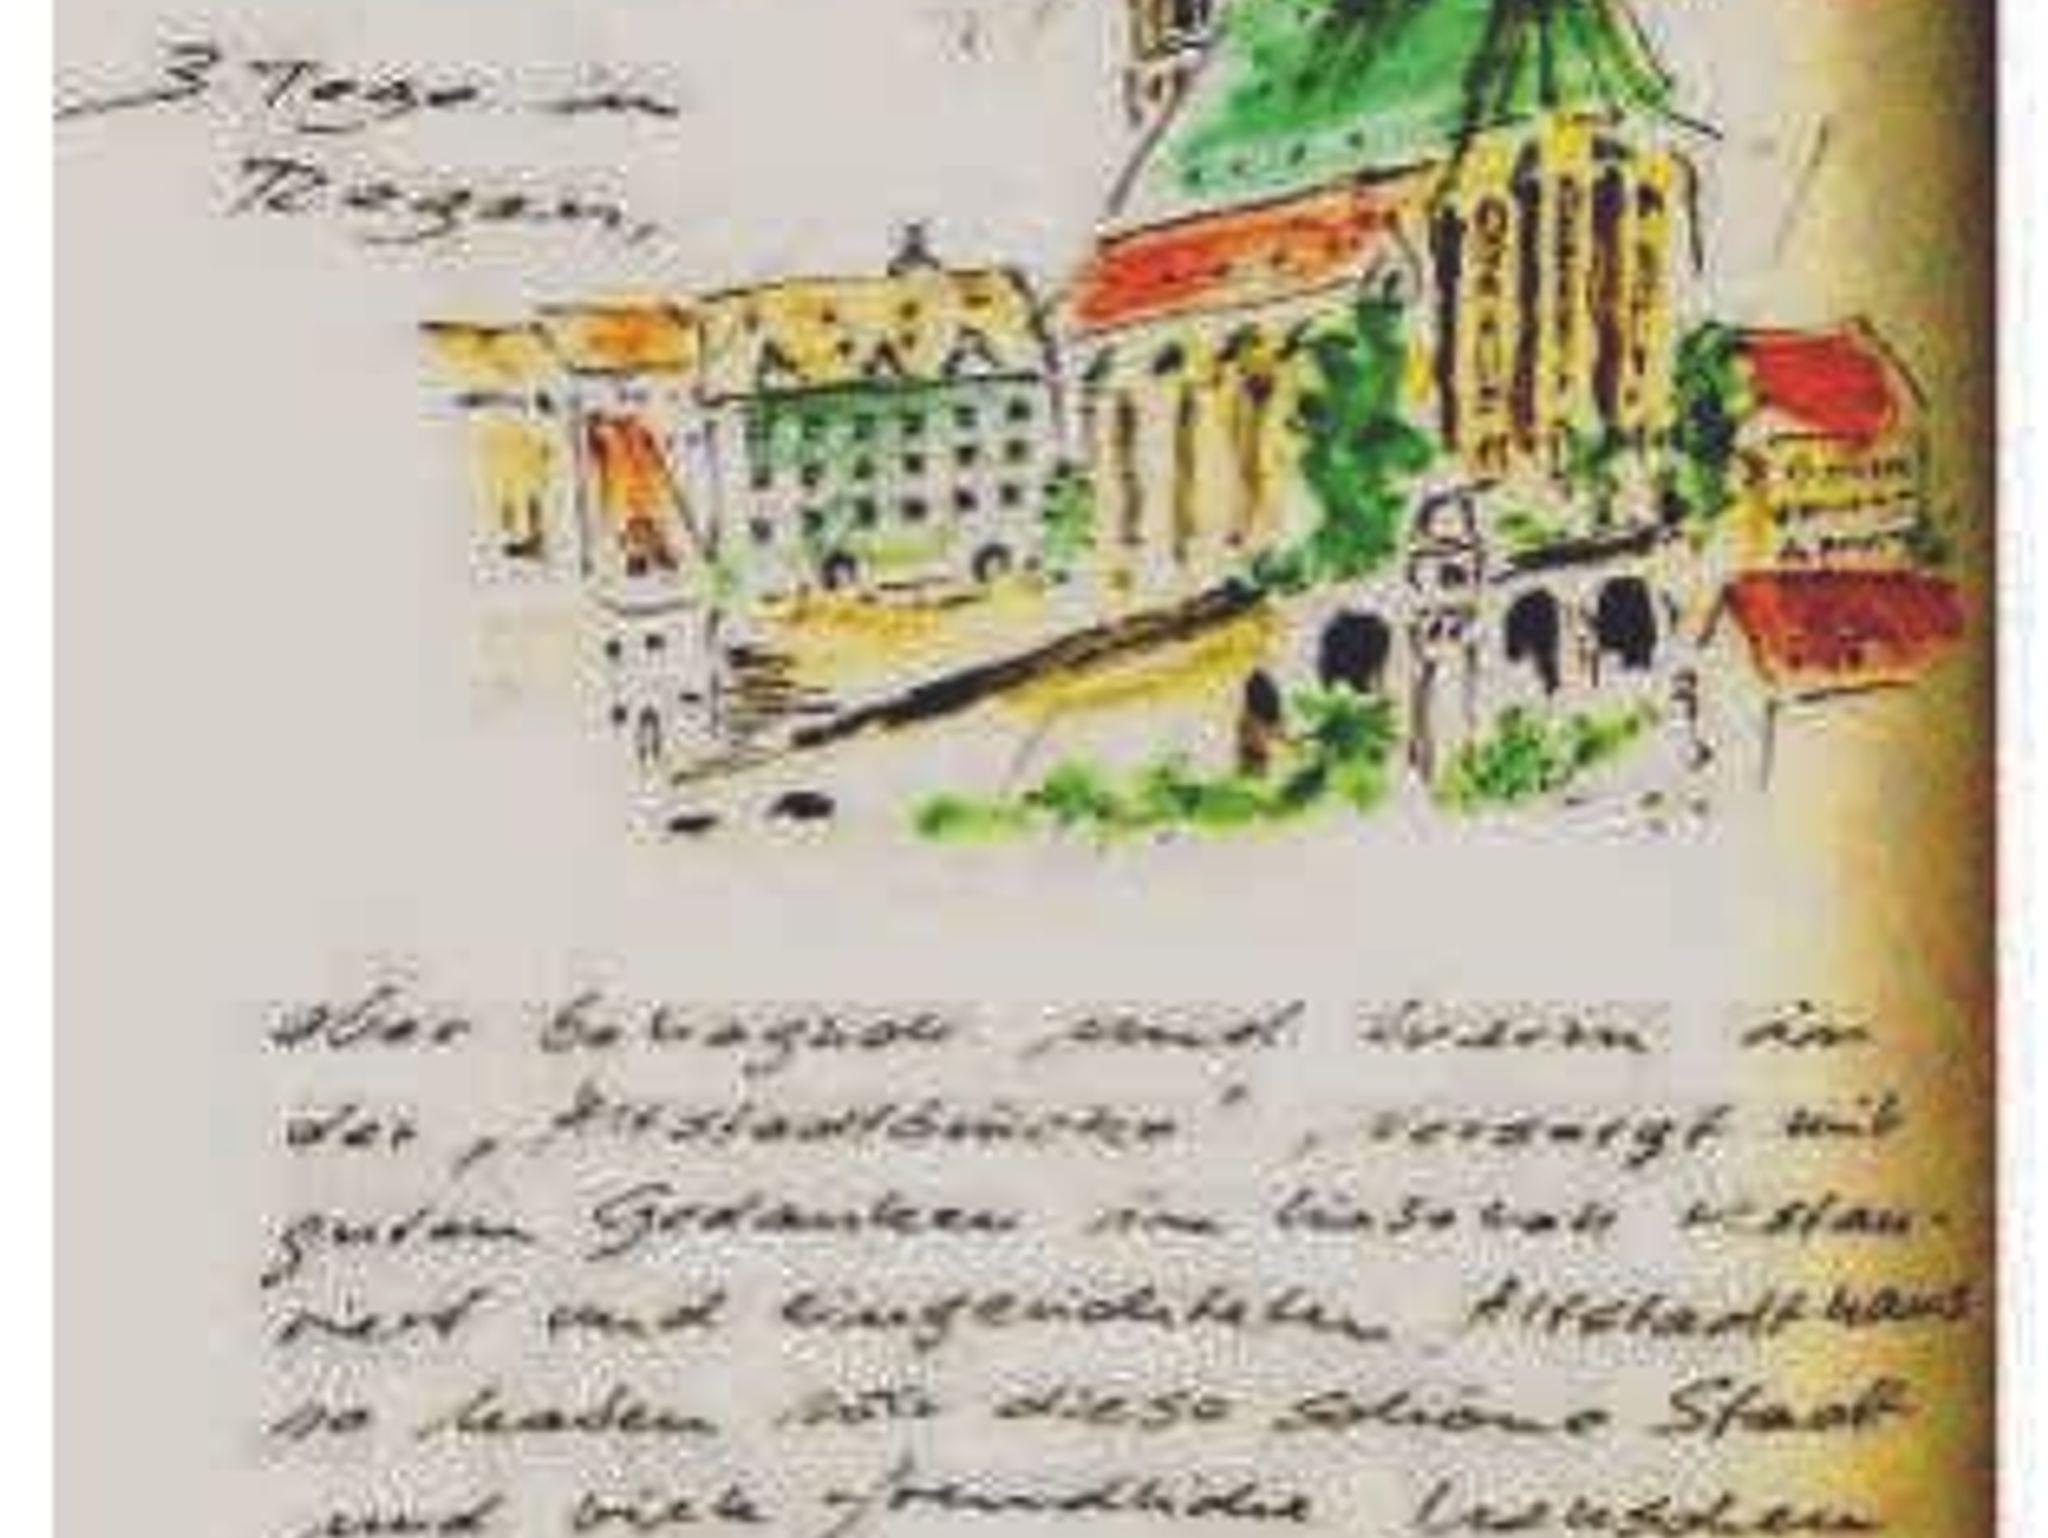 3 Tage in
Regen,
aber behagnde und warm in
der „Altstadtbrücke“, versorgt mit
guten Gedanken im liebevoll restau-
riert und eingerichteten Altstadthaus
so haben wir diese schöne Stadt
und viele freundliche Menschen